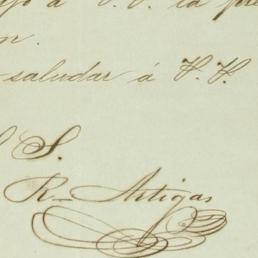 á V. V. la pre
n.
saludar á V. V.
S.
R— Artigas